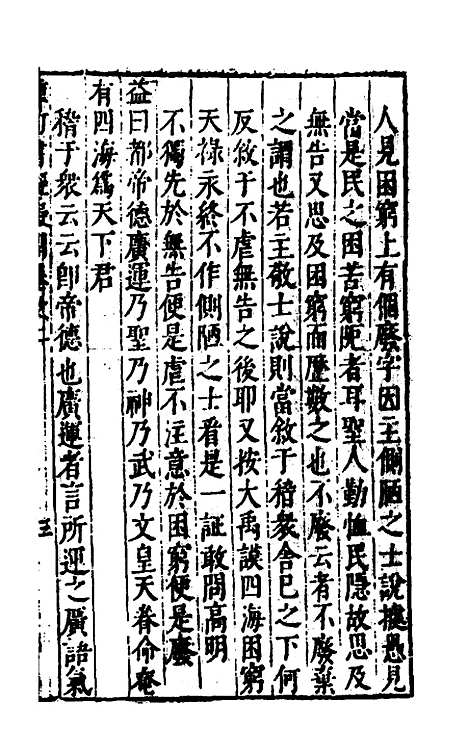 人見困窮上有個廢字因主側陋之士說據愚見
當是民之困苦窮
者耳聖人勤恤民隱故思及
無告又思及困窮而歷數之也不廢云者不廢棄
之謂也若主敬士說則當敘于稽衆舍已之下何
反敘于不虐無告之後耶又按大禹謨四海困窮
天祿永終不作側陋之士看是一証敢問高明
不獨先於無告便是虐不注意於困窮便是廢
益曰都帝德廣運乃聖乃神乃武乃文皇天眷命奄
有四海爲天下君
稽于衆云云卽帝德也廣運者言所運之廣語氣